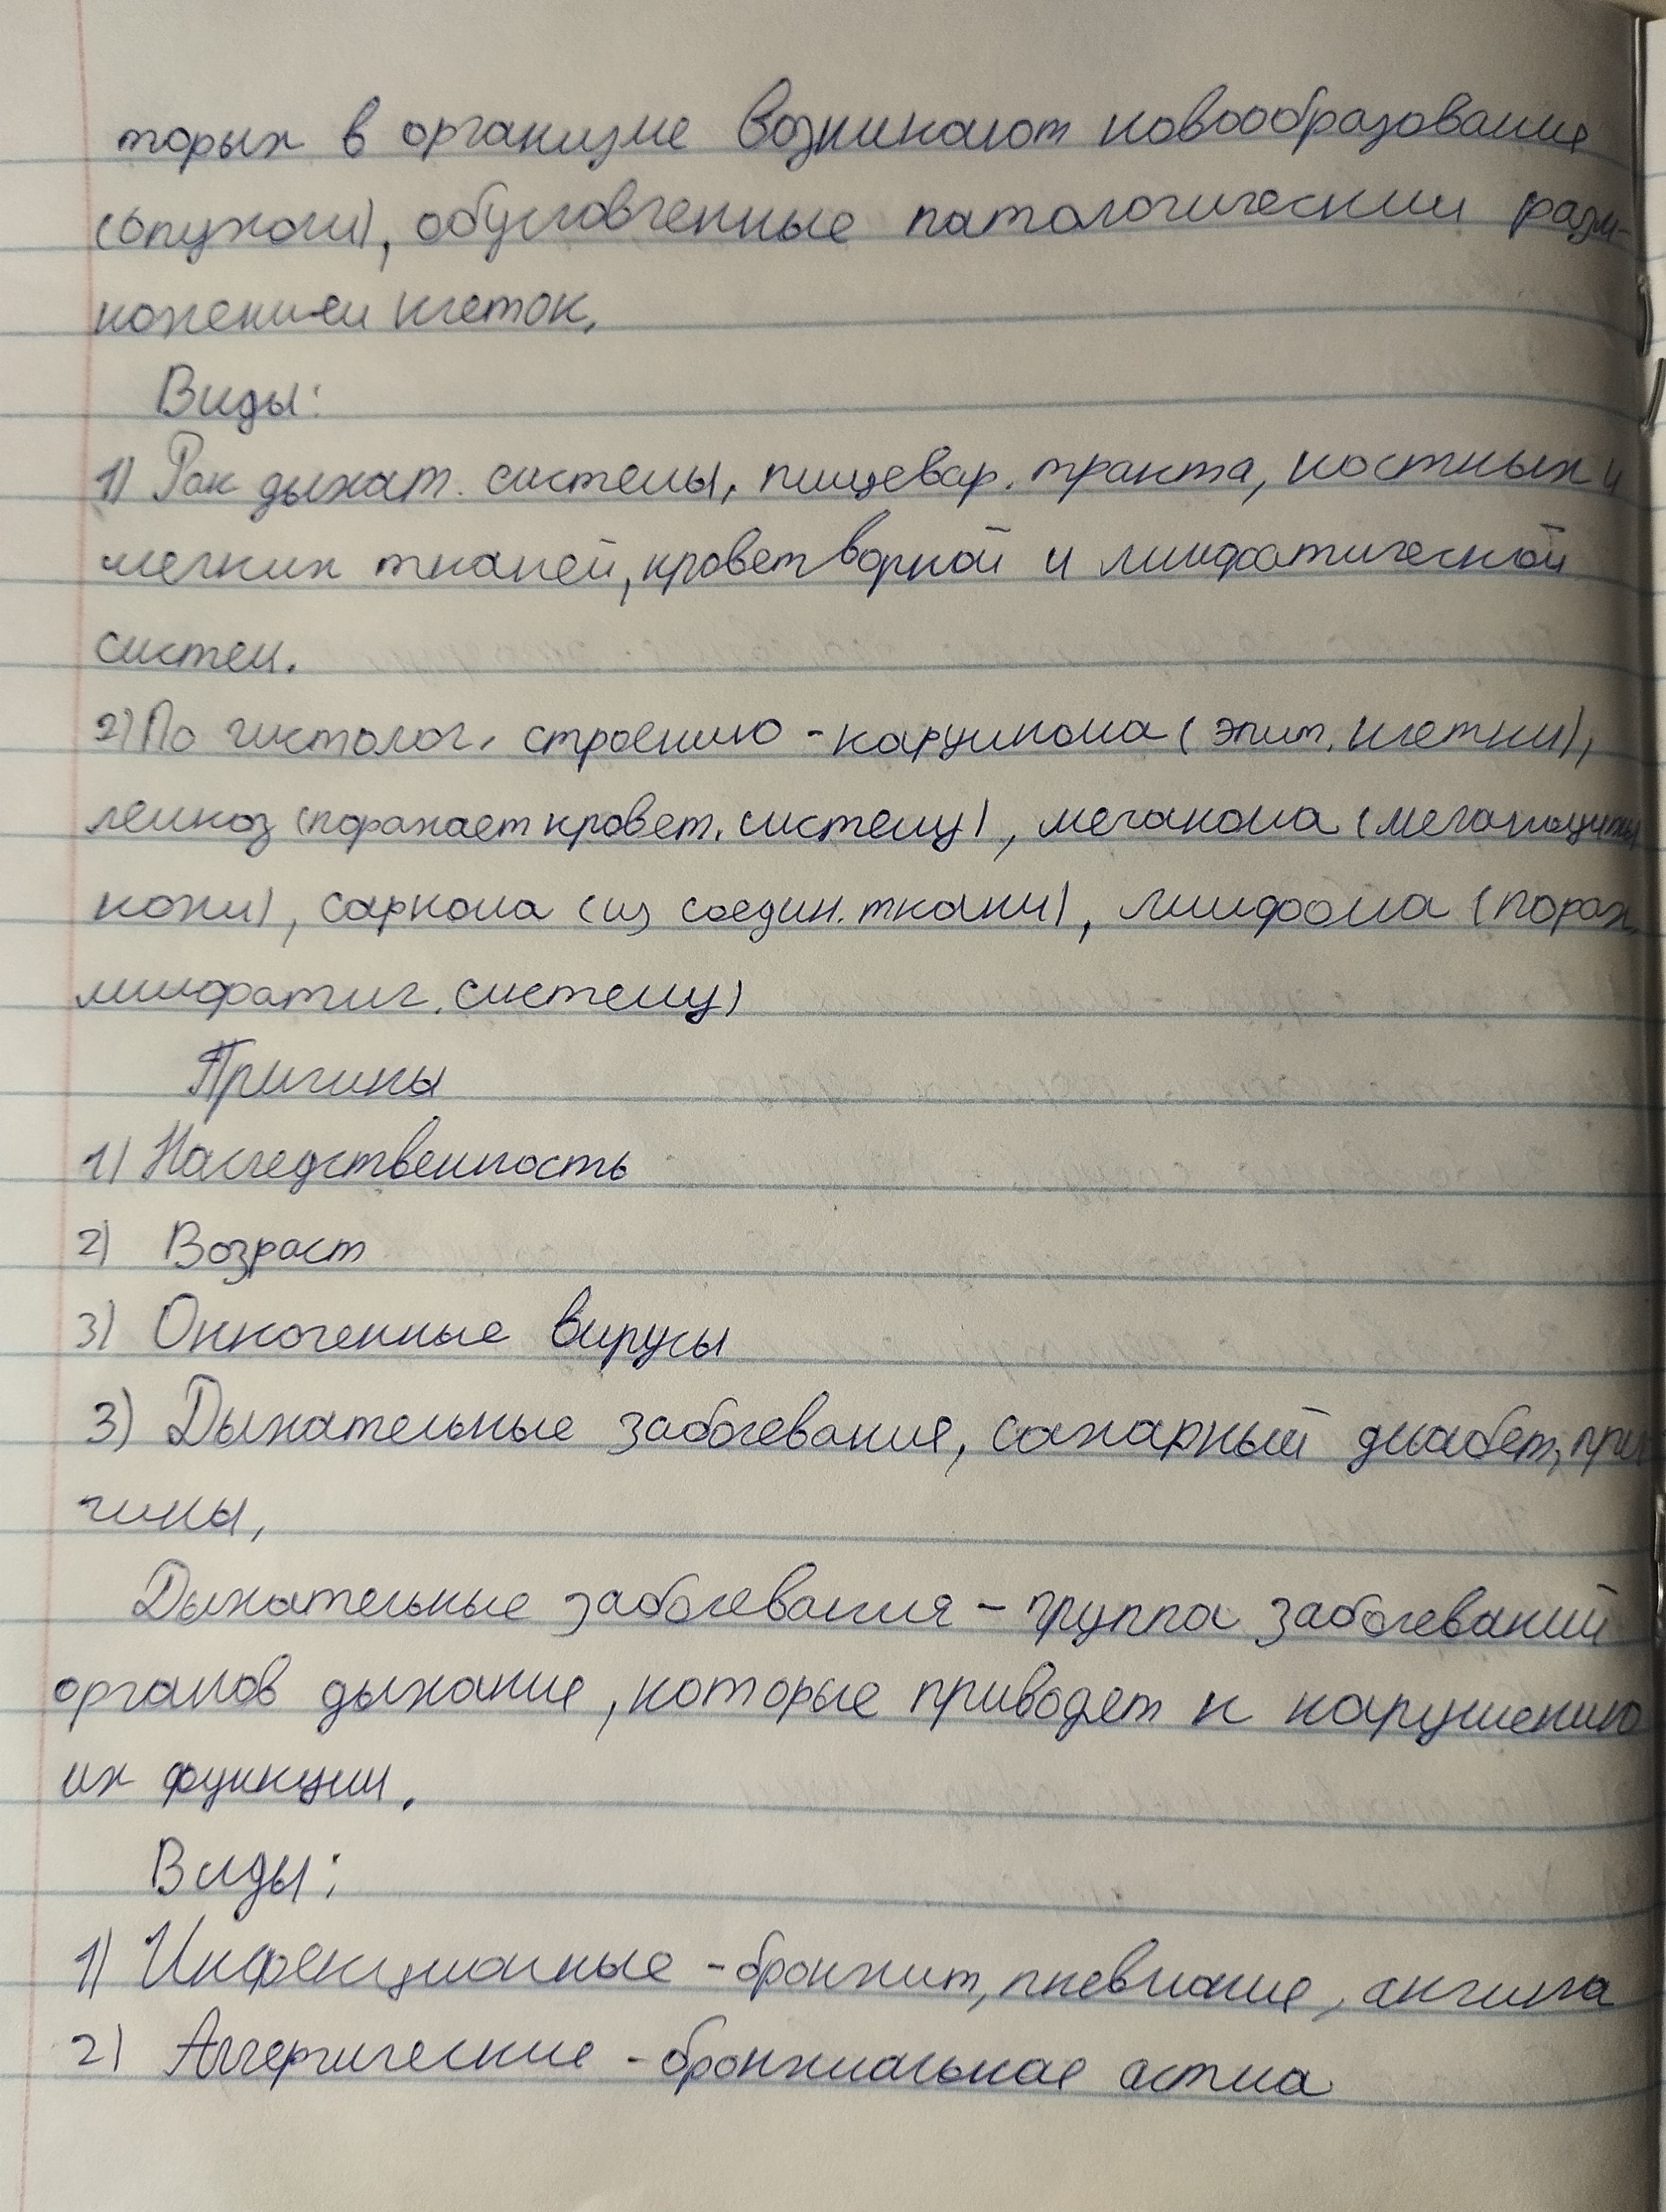 торых в организме возникают новообразования
(опухоли), обусловленные патологическим разм-
ножением клеток.
Виды:
1) Рак дыхат. системы, пищевар. тракта, костных и
мягких тканей, кроветворной и лимфатической
систем.
2) По гистолог. строению - карцинома (эпит. клетки),
лейкоз (поражает кровет. систему), меланома (меланоциты
кожи), саркома (из соедин. ткани), лимфома (пораж.
лимфатич. систему)
Причины
1) Наследственность
2) Возраст
3) Онкогенные вирусы
3) Дыхательные заболевания, сахарный диабет, при
чины,
Дыхательные заболевания - группа заболеваний
органов дыхания, которые приводят к нарушению
их функции.
Виды:
1) Инфекционные - бронхит, пневмания, ангина
2) Аллергические - бронхиальная астма